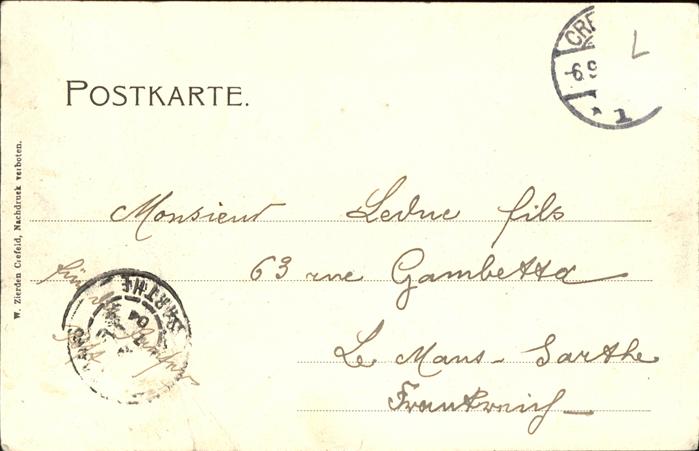 POSTKARTE.
CRE
-6.9
* 1
L
W. Zierden Crefeld, Nachdruck verboten.
Monsieur Leduc fils
63 rue Gambetta
Le Mans - Sarthe
Frankreich
SARTHE
04